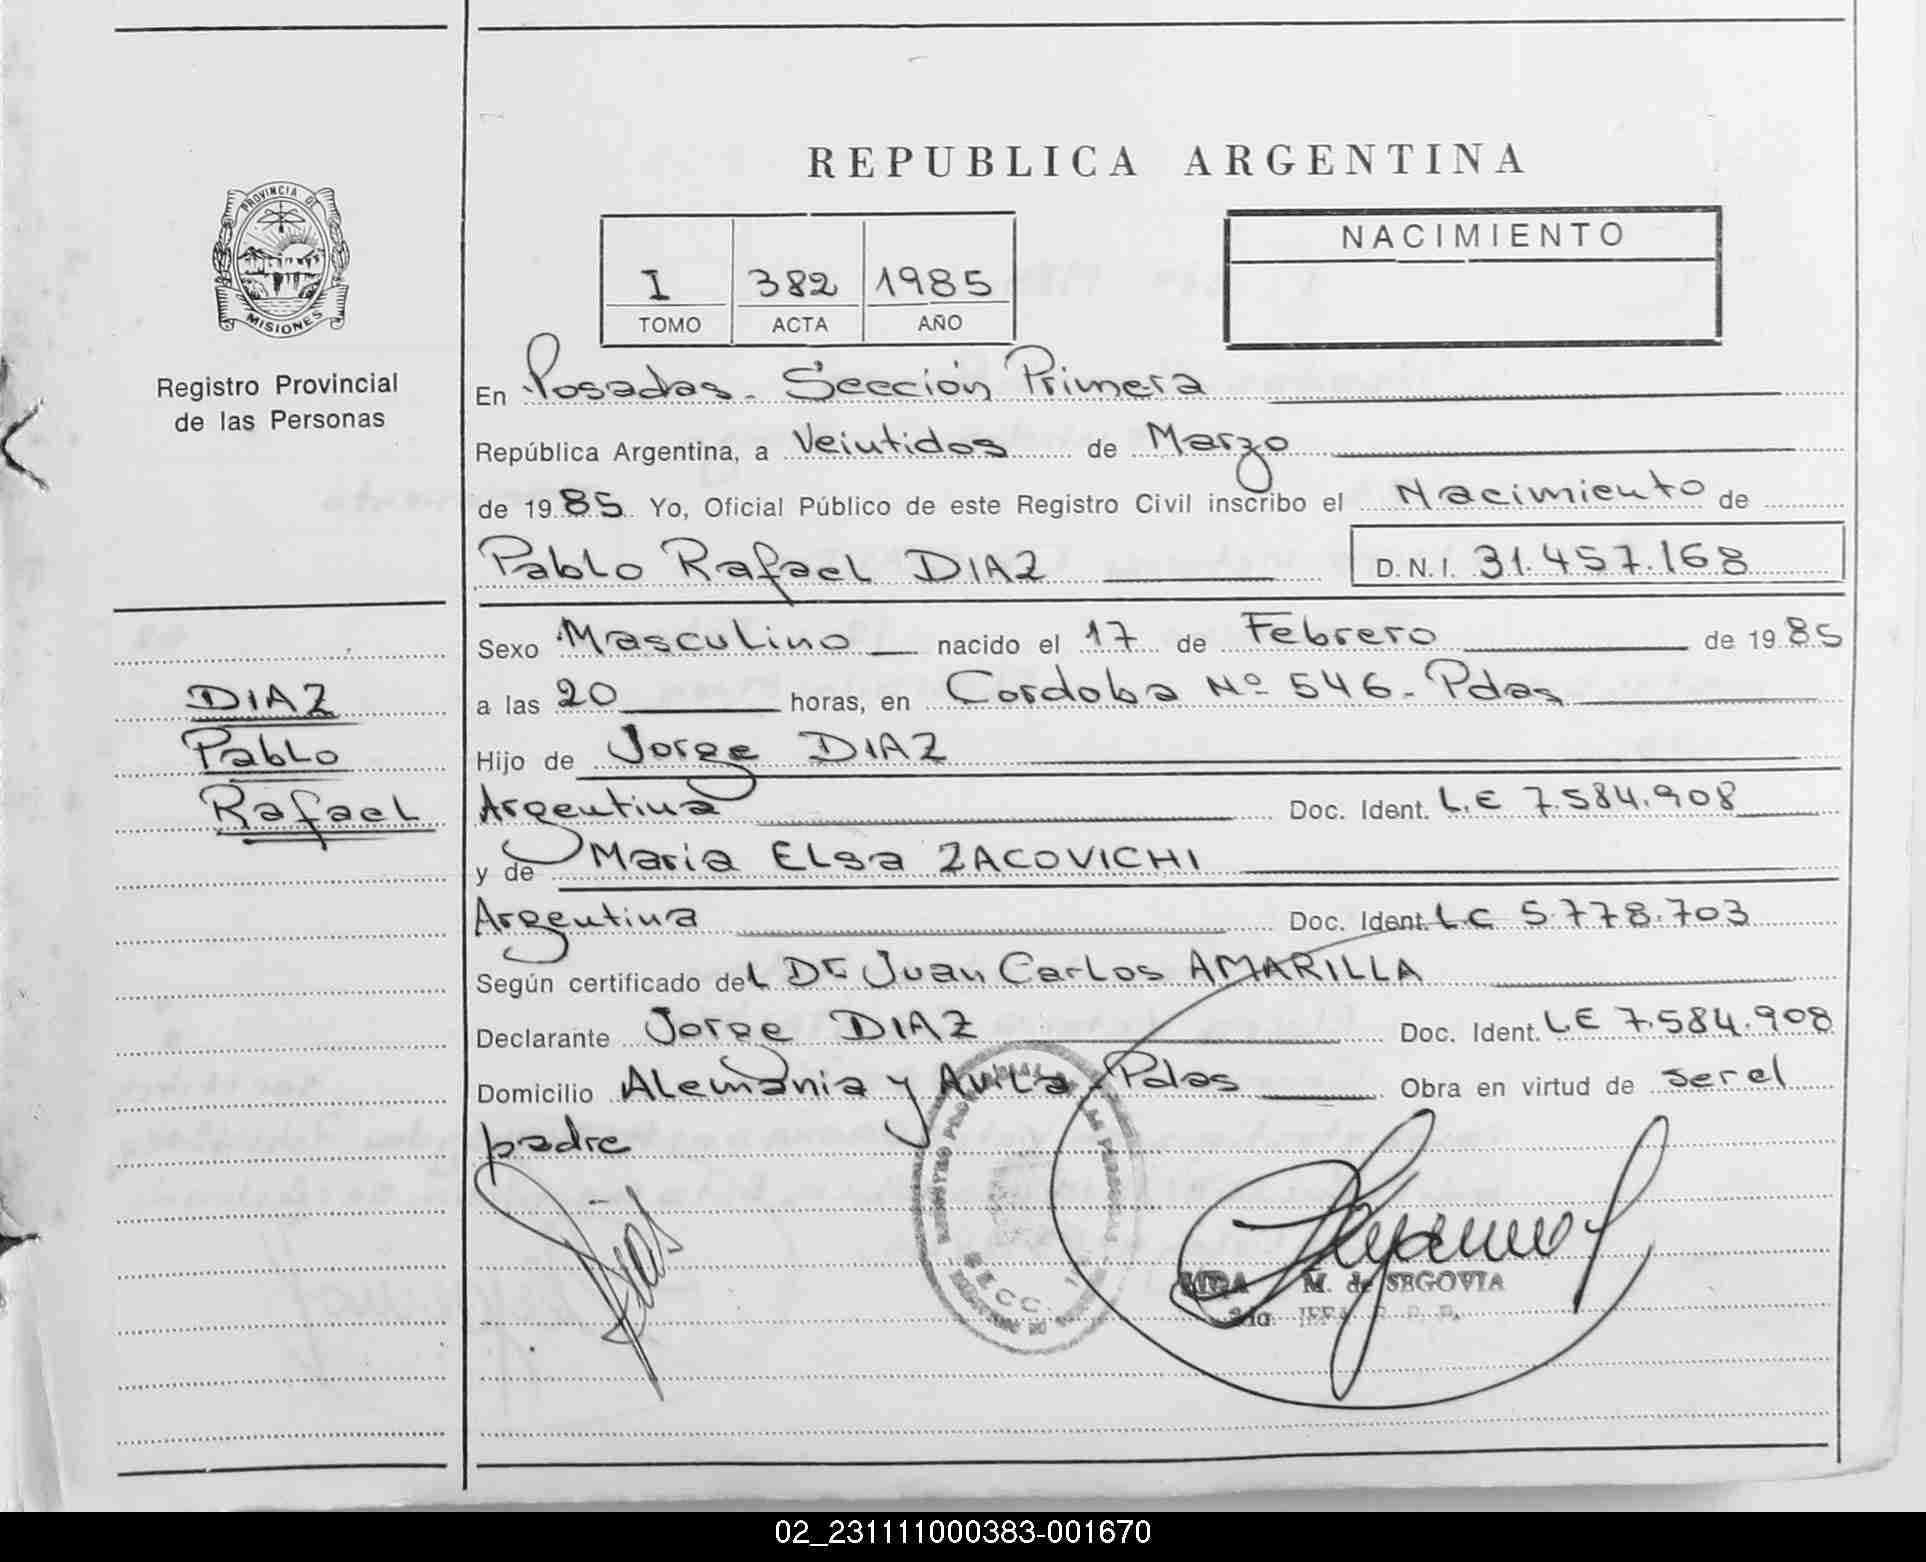 REPUBLICA ARGENTINA
PROVINCIA DE
MISIONES
Registro Provincial
de las Personas
I 382 1985
TOMO ACTA AÑO
NACIMIENTO
En Posadas. Sección Primera
República Argentina, a Veintidos de Marzo
de 1985 Yo, Oficial Público de este Registro Civil inscribo el Nacimiento de
Pablo Rafael DIAZ D.N.I. 31.457.168
Sexo Masculino nacido el 17 de Febrero de 1985
a las 20 horas, en Cordoba Nº 546. Pdas
Hijo de Jorge DIAZ
Argentina Doc. Ident. L.E 7.584.908
y de Maria Elsa ZACOVICHI
Argentina Doc. Ident. L.C 5.778.703
Según certificado del Dr Juan Carlos AMARILLA
Declarante Jorge DIAZ Doc. Ident. LE 7.584.908
Domicilio Alemania y Avila - Pdas Obra en virtud de ser el
padre
DIAZ
Pablo
Rafael
M. de SEGOVIA
02_231111000383-001670